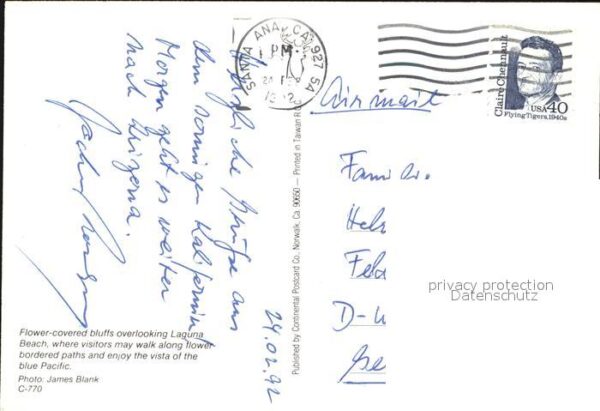 24.02.92
Herzliche Grüße aus
dem sonnigen Kalifornien!
Morgen geht es weiter
nach Arizona.
Flower-covered bluffs overlooking Laguna
Beach, where visitors may walk along flower-
bordered paths and enjoy the vista of the
blue Pacific.
Photo: James Blank
C-770
Published by Continental Postcard Co. Norwalk, Ca. 90650 — Printed in Taiwan R.O.C.
SANTA ANA, CA 927 5A
PM
Claire Chennault
USA 40
Flying Tigers, 1940s
Airmail
Familie
privacy protection
Datenschutz